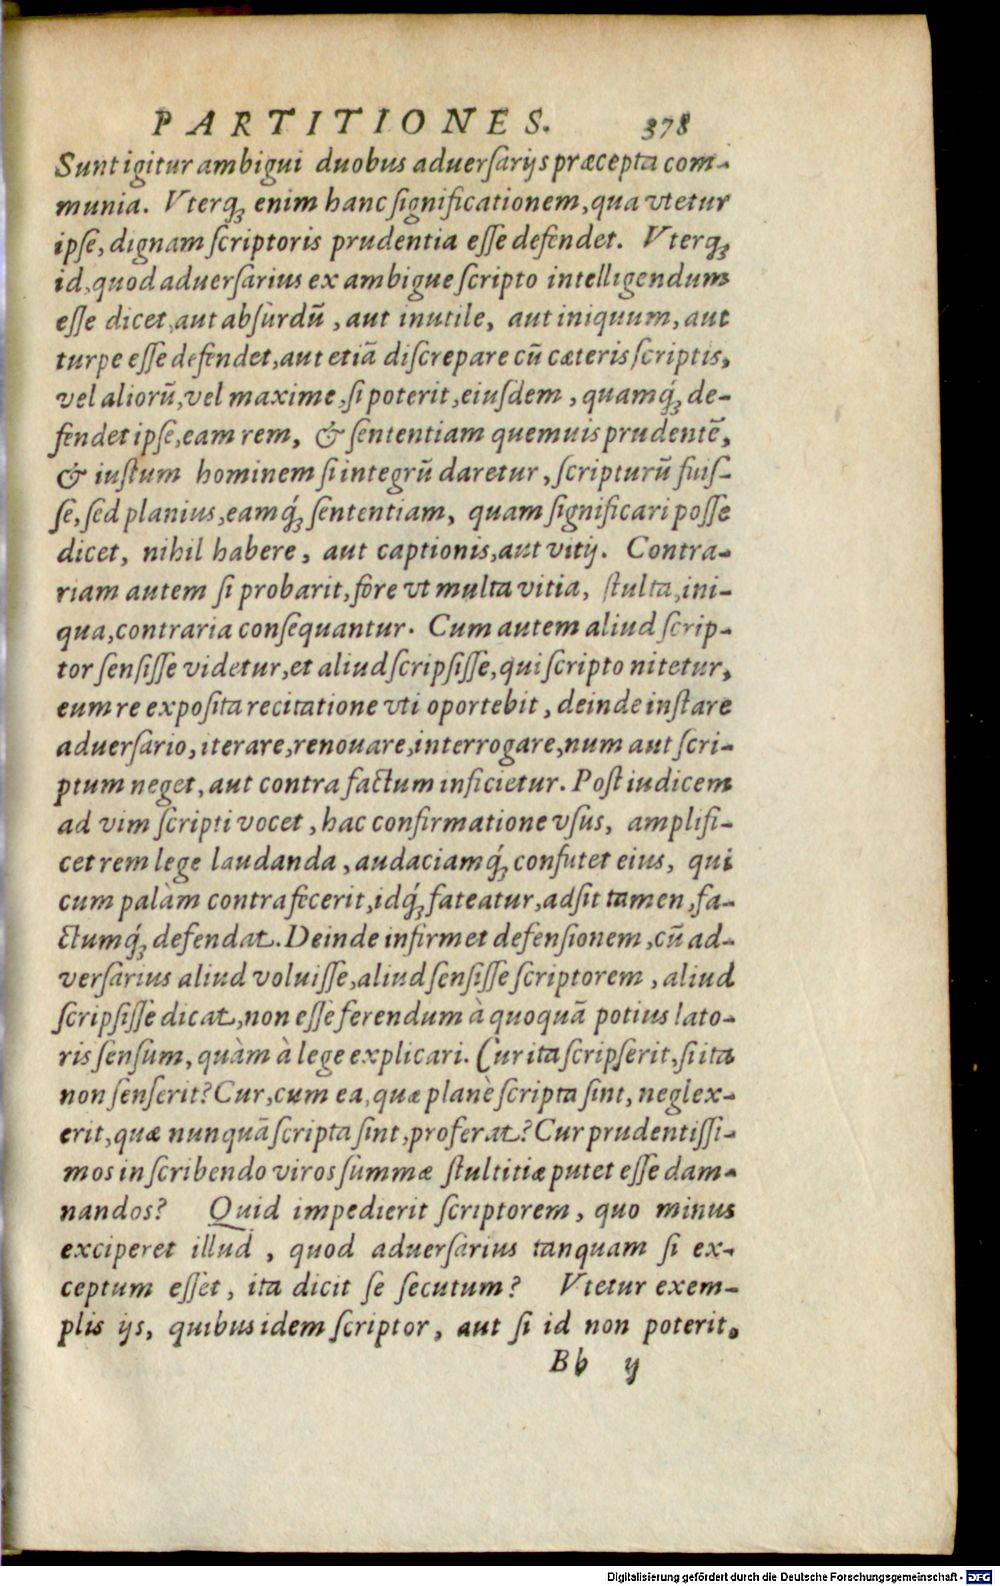 PARTITIONES. 378
Sunt igitur ambigui duobus aduersarijs præcepta com-
munia. Vterq́; enim hanc significationem, qua vtetur
ipse, dignam scriptoris prudentia esse defendet. Vterq́;
id, quod aduersarius ex ambigue scripto intelligendum
esse dicet, aut absurdũ, aut inutile, aut iniquum, aut
turpe esse defendet, aut etiã discrepare cũ cæteris scriptis,
vel aliorũ, vel maxime, si poterit, eiusdem, quamq́; de-
fendet ipse, eam rem, & sententiam quemuis prudentẽ,
& iustum hominem si integrũ daretur, scripturũ fuis-
se, sed planius, eamq́; sententiam, quam significari posse
dicet, nihil habere, aut captionis, aut vitij. Contra-
riam autem si probarit, fore vt multa vitia, stulta, ini-
qua, contraria consequantur. Cum autem aliud scrip-
tor sensisse videtur, et aliud scripsisse, qui scripto nitetur,
eum re exposita recitatione vti oportebit, deinde instare
aduersario, iterare, renouare, interrogare, num aut scri-
ptum neget, aut contra factum inficietur. Post iudicem
ad vim scripti vocet, hac confirmatione vsus, amplifi-
cet rem lege laudanda, audaciamq́; confutet eius, qui
cum palàm contra fecerit, idq́; fateatur, adsit tamen, fa-
ctumq́; defendat. Deinde infirmet defensionem, cũ ad-
versarius aliud voluisse, aliud sensisse scriptorem, aliud
scripsisse dicat, non esse ferendum à quoquã potius lato-
ris sensum, quàm à lege explicari. Cur ita scripserit, si ita
non senserit? Cur, cum ea, quæ planè scripta sint, neglex-
erit, quæ nunquã scripta sint, proferat? Cur prudentissi-
mos in scribendo viros summæ stultitiæ putet esse dam-
nandos? Quid impedierit scriptorem, quo minus
exciperet illud, quod aduersarius tanquam si ex-
ceptum esset, ita dicit se secutum? Vtetur exem-
plis ijs, quibus idem scriptor, aut si id non poterit,
Bb ij
Digitalisierung gefördert durch die Deutsche Forschungsgemeinschaft - DFG